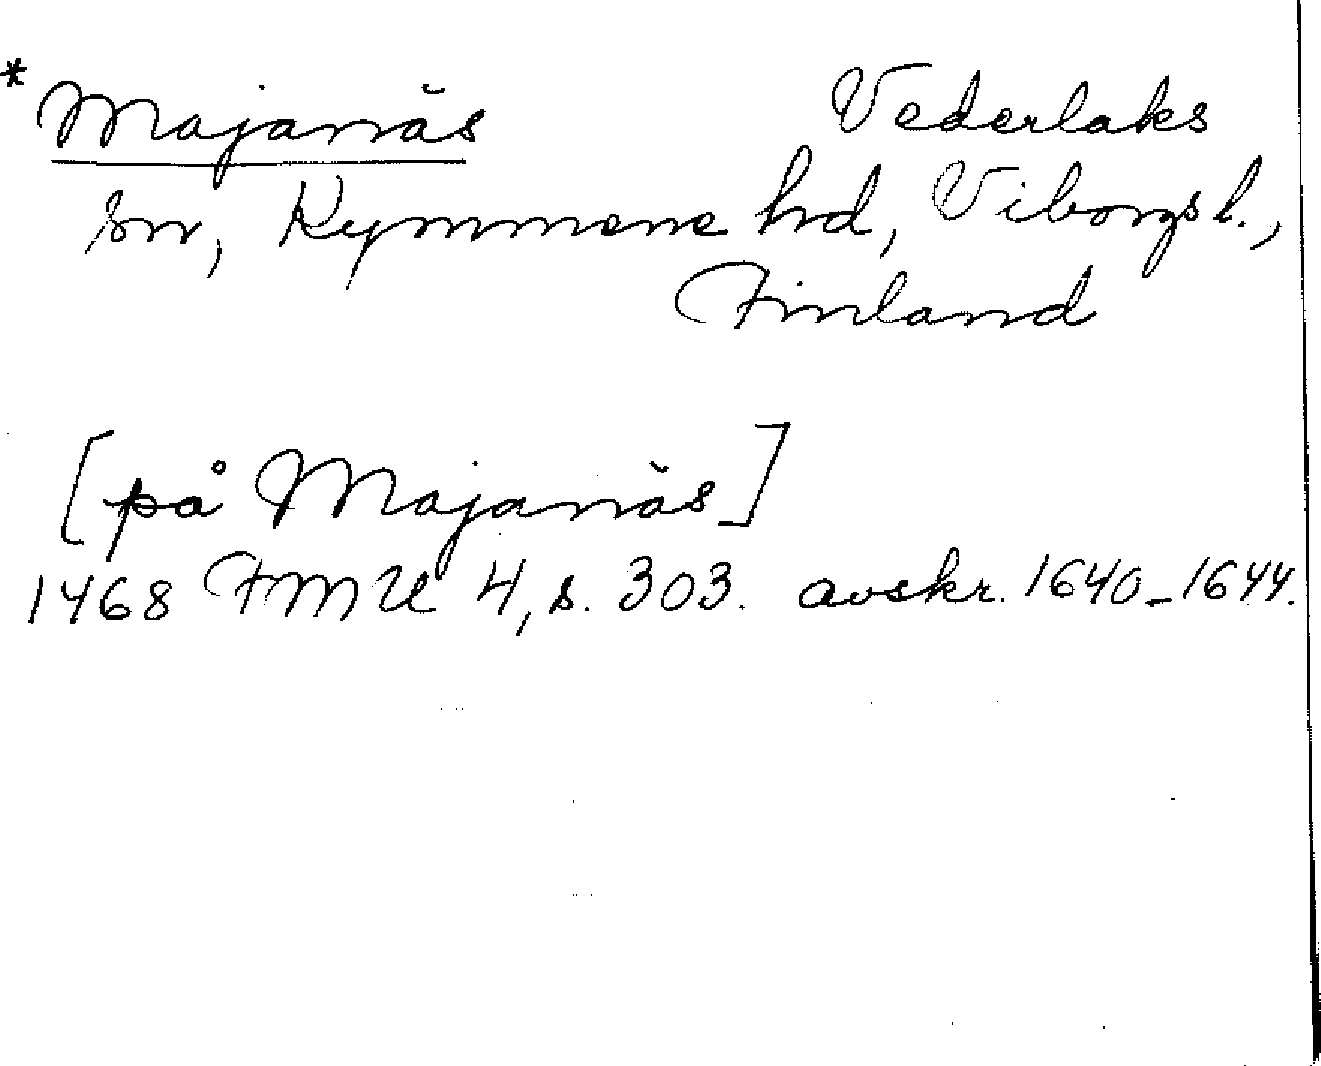 * Majanäs Vederlaks
sn, Kymmene hd, Viborgs l.,
Finland
[på Majanäs]
1468 FMU 4, s. 303. avskr. 1640-1644.